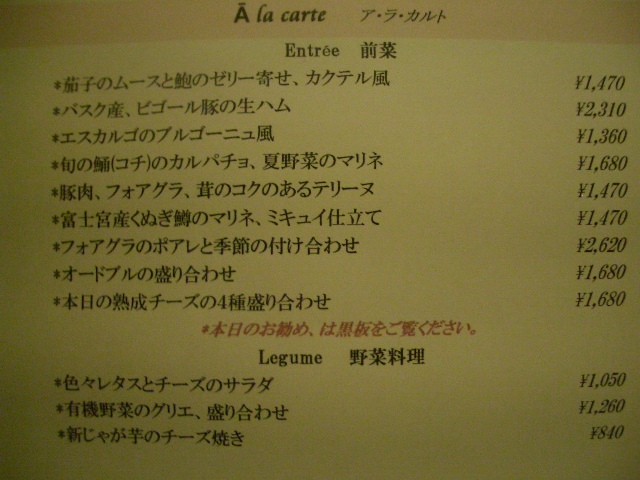 Ā la carte ア・ラ・カルト
Entrée 前菜
*茄子のムースと鮑のゼリー寄せ、カクテル風 ¥1,470
*バスク産、ビゴール豚の生ハム ¥2,310
*エスカルゴのブルゴーニュ風 ¥1,360
*旬の鯒(コチ)のカルパチョ、夏野菜のマリネ ¥1,680
*豚肉、フォアグラ、茸のコクのあるテリーヌ ¥1,470
*富士宮産くぬぎ鱒のマリネ、ミキュイ仕立て ¥1,470
*フォアグラのポアレと季節の付け合わせ ¥2,620
*オードブルの盛り合わせ ¥1,680
*本日の熟成チーズの4種盛り合わせ ¥1,680
*本日のお勧め、は黒板をご覧ください。
Legume 野菜料理
*色々レタスとチーズのサラダ ¥1,050
*有機野菜のグリエ、盛り合わせ ¥1,260
*新じゃが芋のチーズ焼き ¥840